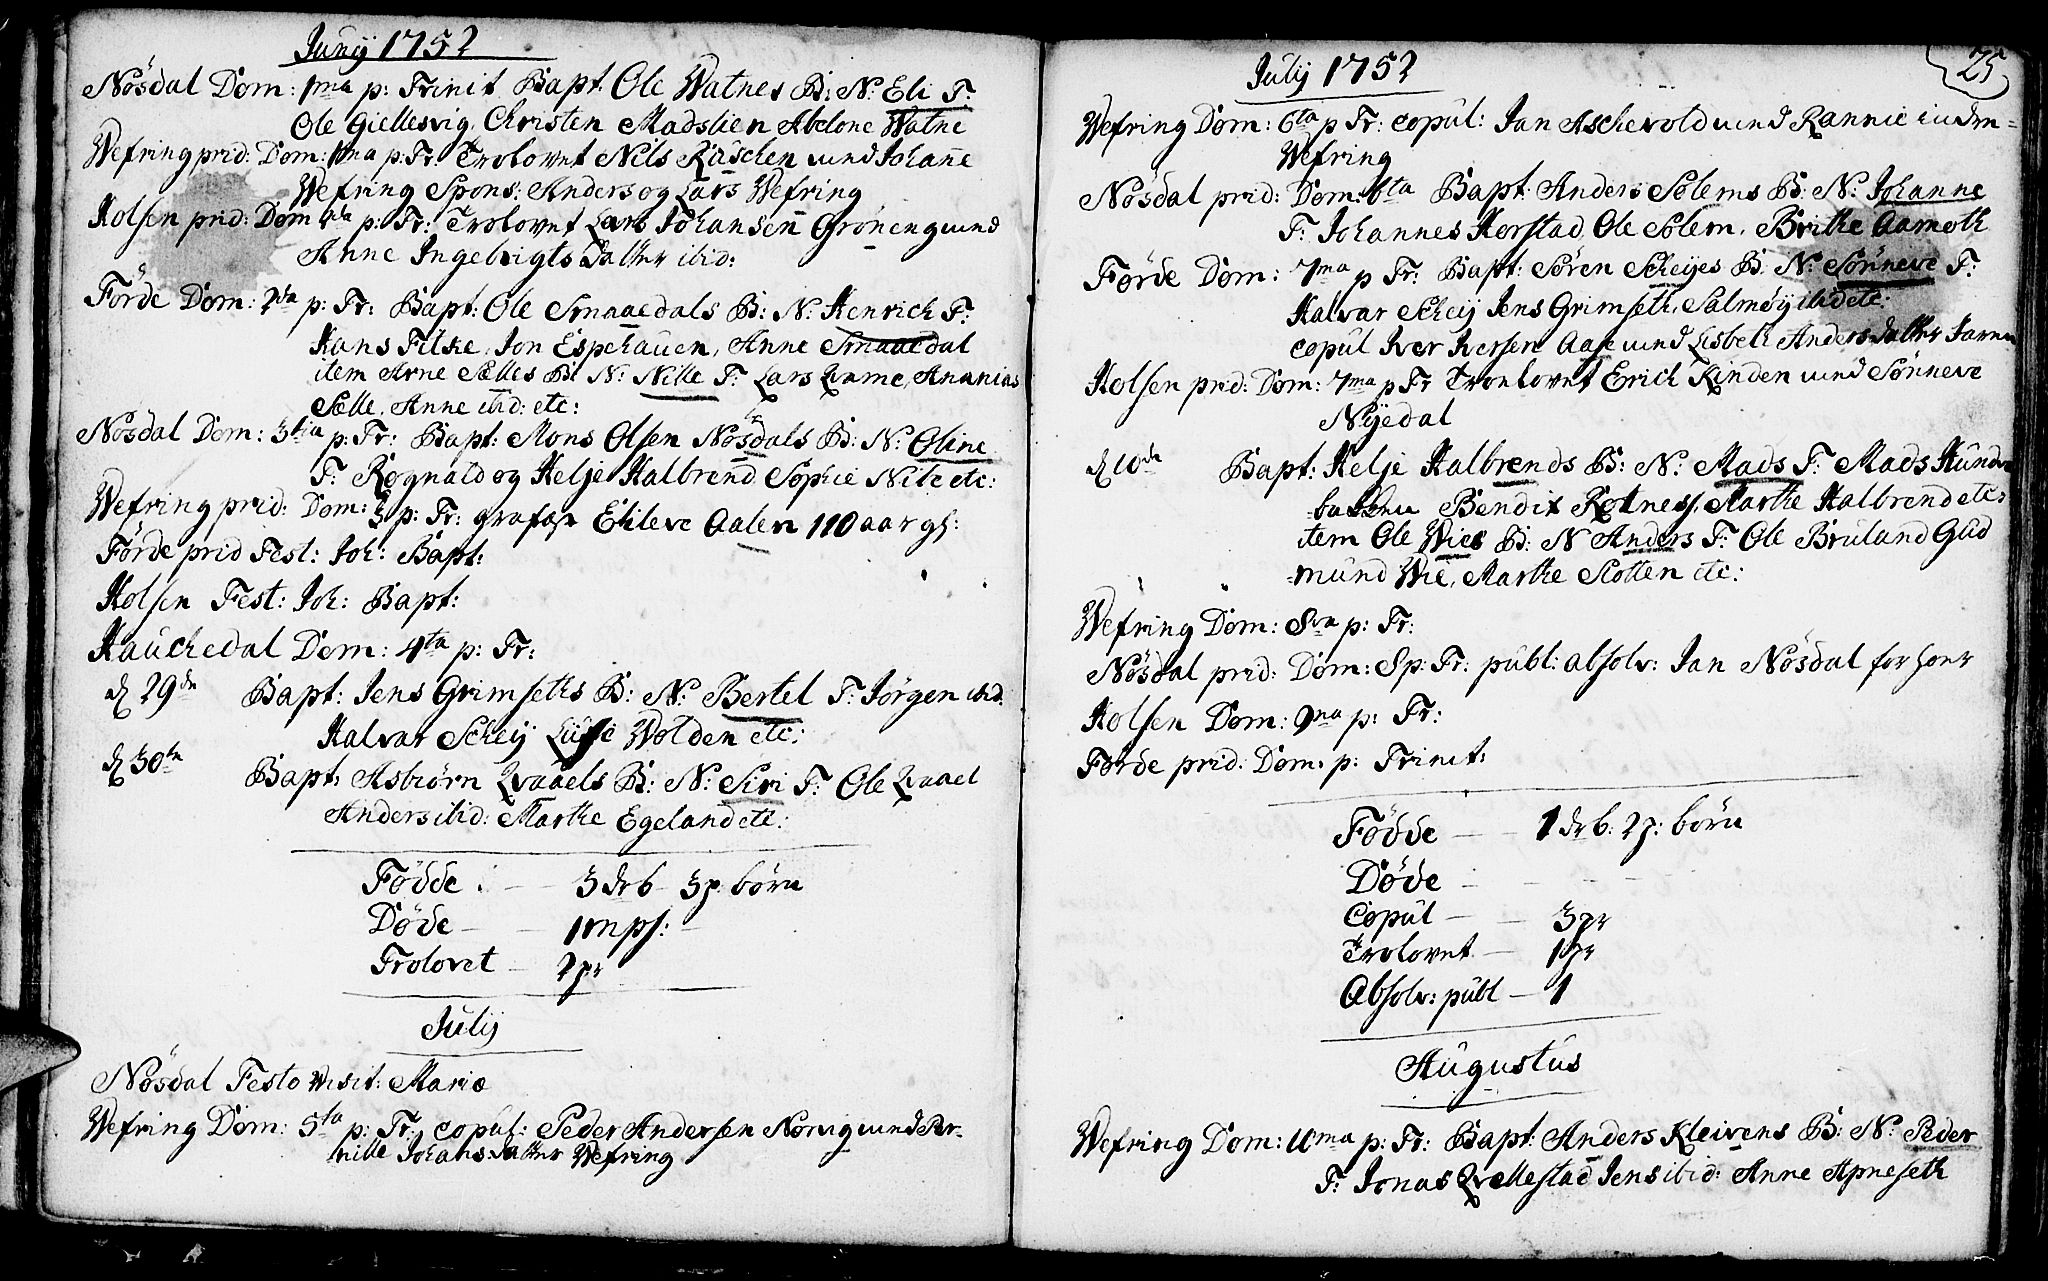 Junij 1752
Nösdal Dom: 1ma p: Trinit Bapt: Ole Watnes B: N: Eli F:
Ole Giellesvig, Christen Madslien Abelone Watne
Wefring prid: Dom: 1ma p: Tr: Trolovet Nils Råschen med Johane
Wefring Spons: Anders og Lars Wefring
Holsen prid: Dom p: Tr: Trolovet Lars Johansen Grøneng med
Anne Ingebrigts Datter ibid:
Förde Dom: 2da p: Tr: Bapt: Ole Smaaedals B: N: Henrich F:
Hans Filske, Jon Espehauen, Anne Smaaedal
item Arne Sælles B: N: Nille F: Lars Qvame, Ananias
Sælle, Anne ibid: etc:
Nösdal Dom: 3tia p: Tr: Bapt: Mons Olsen Nösdals B: N: Oline
F: Rognald og Helje Halbrend Sophie Nibe etc:
Wefring prid: Dom: 3 p: Tr: grafæst Ehleve Aalen 110 aar gl:
Förde prid Fest: Joh: Bapt:
Holsen Fest: Joh: Bapt:
Hauchedal Dom: 4ta p: Tr:
d 29de Bapt: Jens Grimseths B: N: Bertel F: Jörgen ibid
Halvar Scheij Wolden etc:
d 30te Bapt: Asbiörn Qvaaels B: N: Siri F: Ole Qvaael
Anders ibid: Marthe Egeland etc:
Födde : - - 3 drb - 3 p. börn
Döde - - 1 mps: -
Trolovet - 2 pr
Julij
Nösdal Festo visit: Mariæ
Wefring Dom: 5ta p: Tr: copul: Peder Andersen Norvig med Per-
nille Johans Datter Wefring
25
Julij 1752
Wefring Dom: 6ta p Tr: copul: Jan Aschevold med Rannie indre=
Wefring
Nösdal prid: Dom: 6ta Bapt: Anders Solems B: N: Johanne
F: Johannes Horstad, Ole Solem, Brithe Aamoth
Förde Dom: 7ma p Tr: Bapt: Sören Scheijes B: N: Sönneve F:
Halvar Scheij Jens Grimseth, Salmöy ibid etc:
copul Iver Iversen Aase med Lisbeth Anders Datter
Holsen prid: Dom: 7ma p Tr Trolovet Erich Kinden med Sönneve
Nyedal
d 10de Bapt: Helje Halbrends B: N: Mads F: Mads Hunde
backen Bendix Rotnes, Marthe Halbrend etc:
item Ole Wies B: N Anders F: Ole Bruland Gud
-mund Wie, Marthe Slotten etc:
Wefring Dom: 8va p: Tr:
Nösdal prid: Dom: 8 p: Tr: publ: absolv: Jan Nösdal for hoer
Holsen Dom: 9na p: Tr:
Förde prid: Dom: p: Trinit:
Födde - - 1 drb: 2 p: börn
Döde - - - - -
Copul - - 3 pr
Trolovet - 1 pr
Absolv: publ - 1
Augustus
Wefring Dom: 11ma p: Tr: Bapt: Anders Kleivens B: N: Peder
F: Jonas Qvellestad Jens ibid: Anne Apneseth